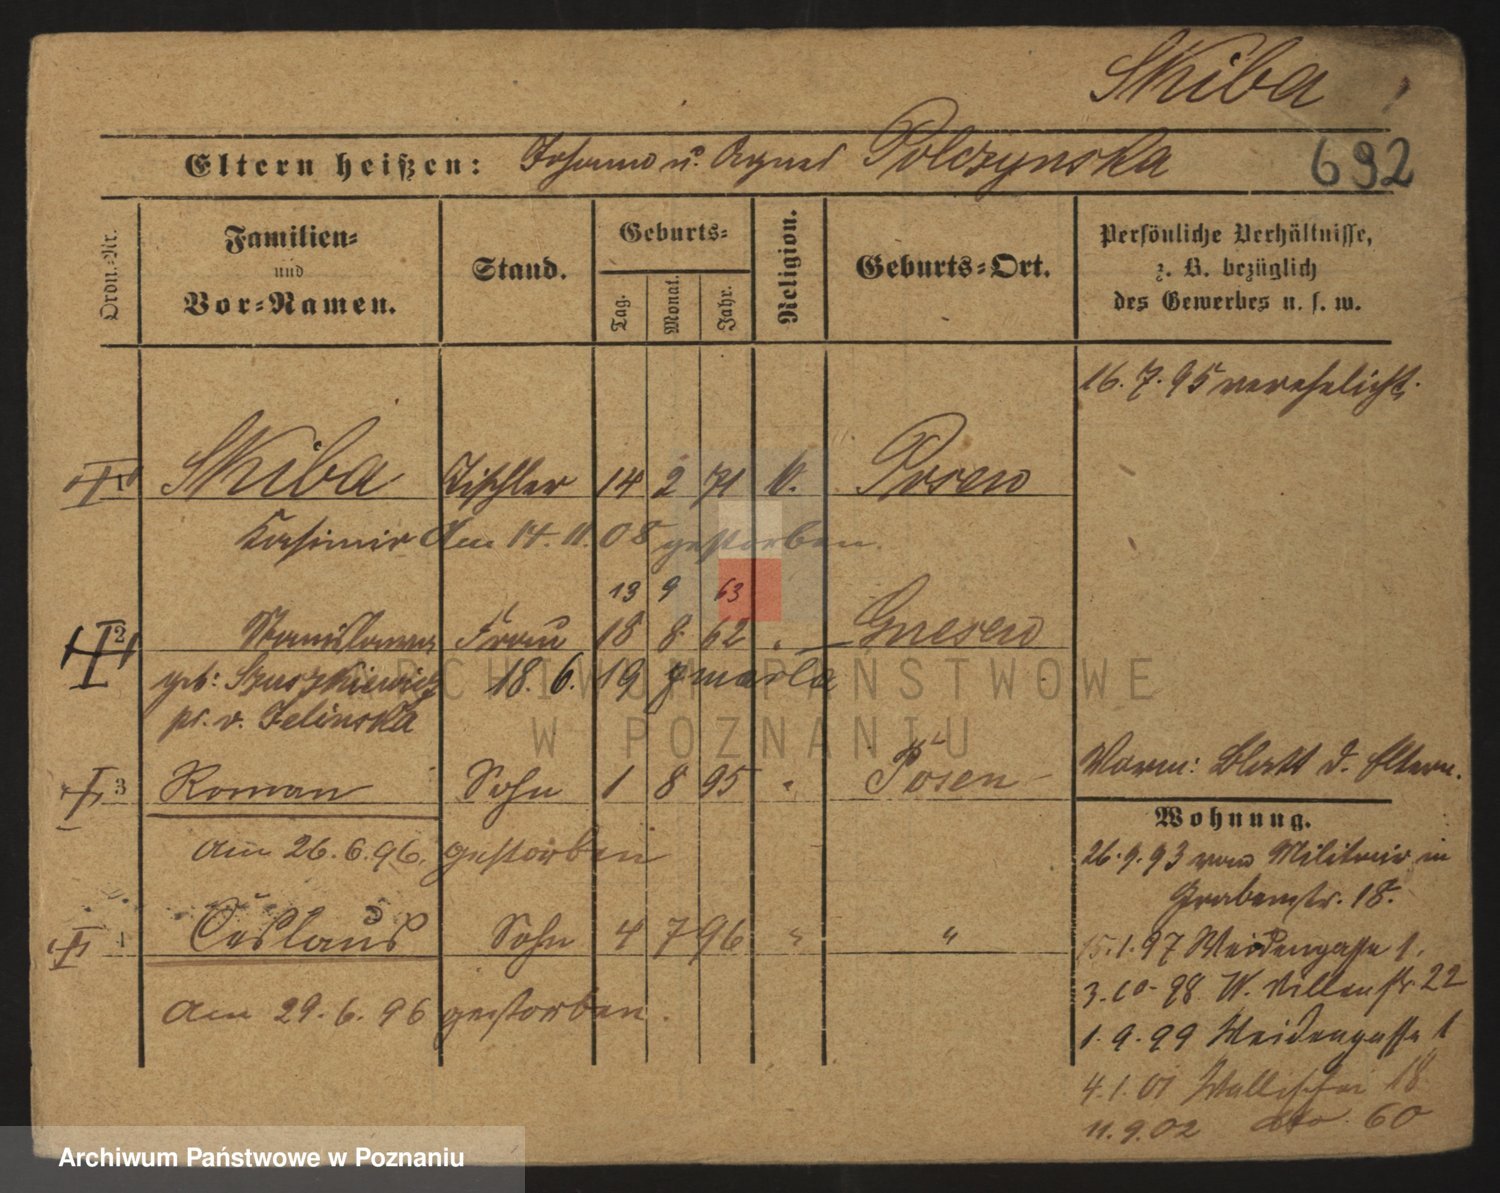 Skiba
692
Eltern heißen: Johann u. Agnes Polczynska
Ordn.-Nr.
Familien-
und
Vor-Namen.
Stand.
Geburts-
Tag.
Monat.
Jahr.
Religion.
Geburts-Ort.
Persönliche Verhältnisse,
z. B. bezüglich
des Gewerbes u. s. w.
16.7.95 verehelicht.
1 Skiba Tischler 14 2 71 k. Posen
Kasimir Am 14.11.08 gestorben.
13 9 63
2 Stanislawa Frau 18 8 62 " Gnesen
geb: Szuszkiewicz 18.6.19 zmarła
pr. v. Jelinska
3 Roman Sohn 1 8 95 " Posen
Vorm: Blatt d. Eltern.
am 26.6.96. gestorben
4 Ceslaus Sohn 4 7 96 " "
Am 29.6.96 gestorben.
Wohnung.
26.9.93 vom Militair in
Grabenstr. 18.
15.1.97 Weidengasse 1.
3.10.98 W. Villenstr. 22
1.9.99 Weidengasse 1
4.1.01 Wallischei 18
11.9.02 dto. 60
ARCHIWUM PAŃSTWOWE
W POZNANIU
Archiwum Państwowe w Poznaniu